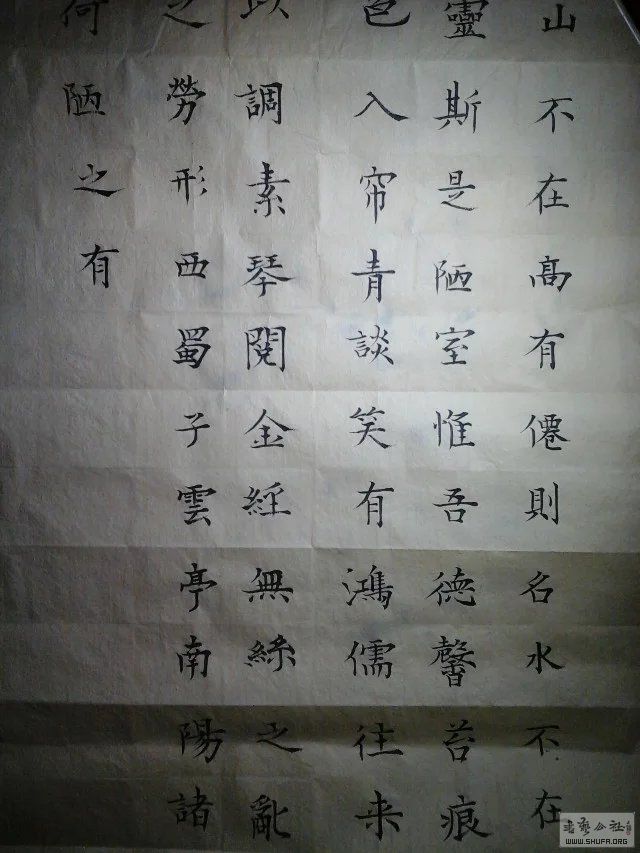 山不在髙有僊則名水不在
靈斯是陋室惟吾德馨苔痕
色入帘青談笑有鴻儒往来
以調素琴閱金經無絲之亂
之勞形西蜀子雲亭南陽諸
何陋之有
书艺公社
WWW.SHUFA.ORG